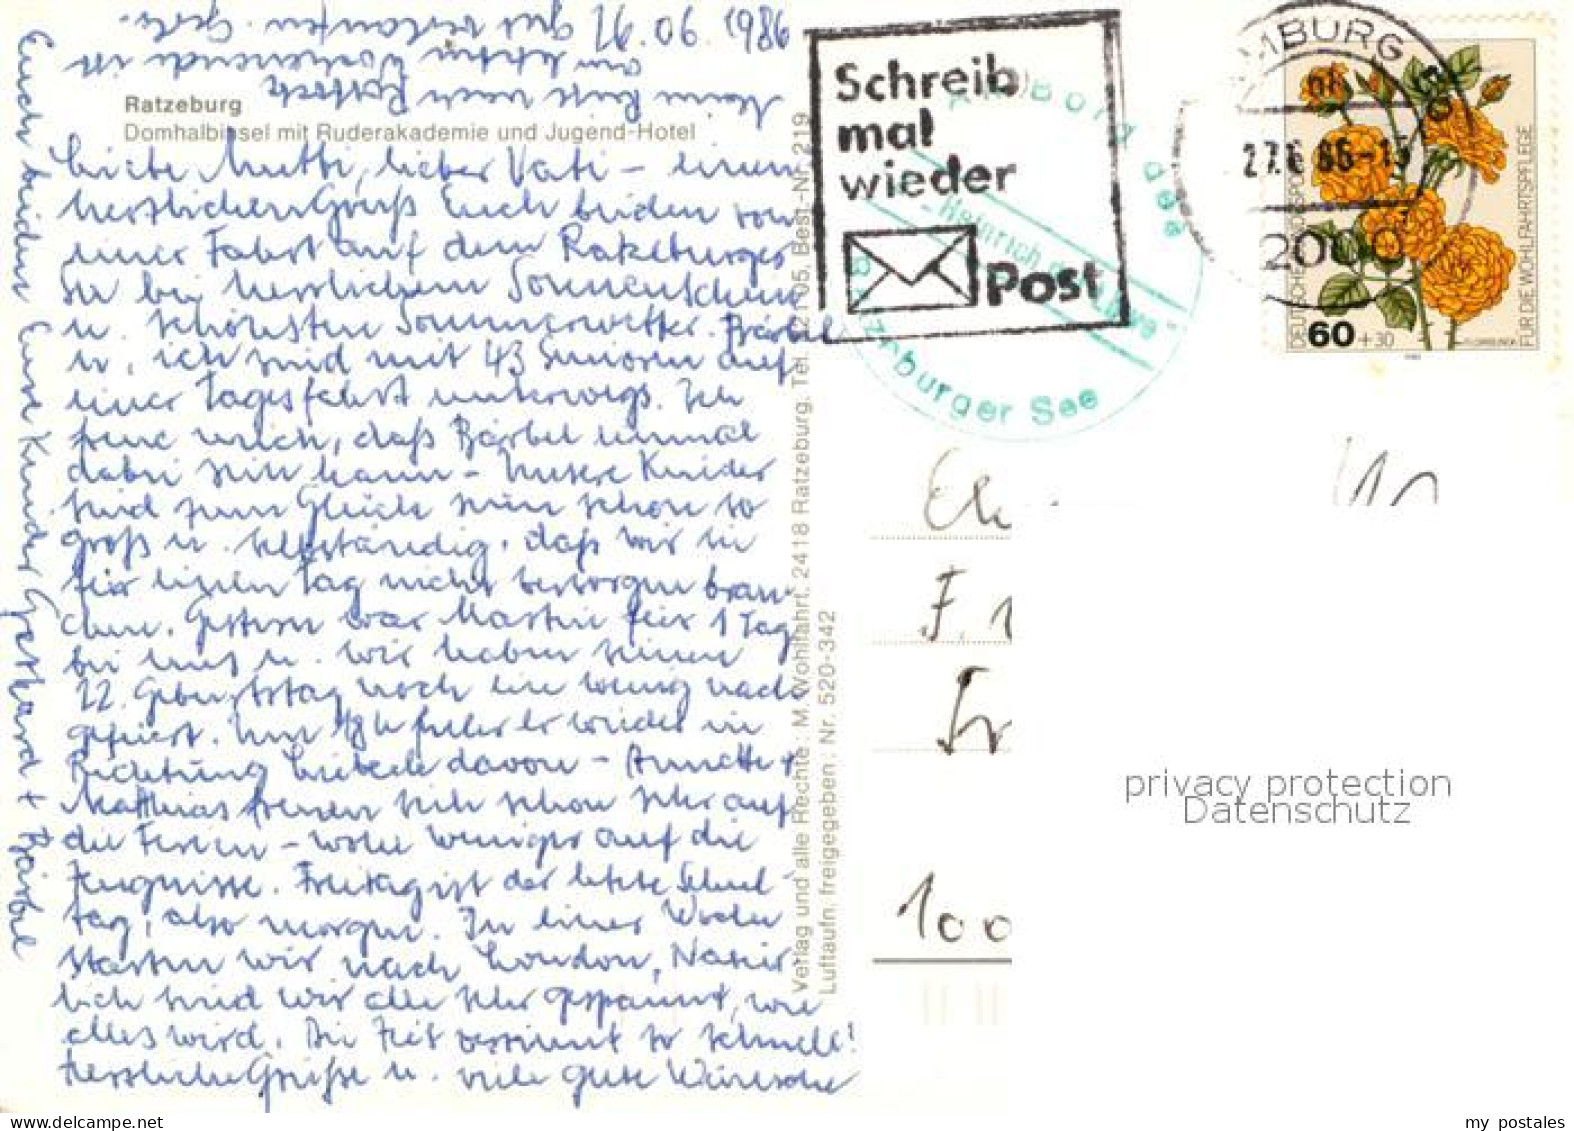 Ratzeburg
Domhalbinsel mit Ruderakademie und Jugend-Hotel
Liebe Mutti, lieber Vati - einen
herzlichen Gruß Euch beiden von
einer Fahrt auf dem Ratzeburger
See bei herrlichem Sonnenschein
u. schönstem Sommerwetter. Bärbel
u. ich sind mit 43 Senioren auf
einer Tagesfahrt unterwegs. Ich
freue mich, daß Bärbel einmal
dabei sein kann - Unsere Kinder
sind zum Glück nun schon so
groß u. selbständig, daß wir sie
für einen Tag nicht versorgen brau-
chen. Gestern war Martin für 1 Tag
bei uns u. wir haben seinen
22. Geburtstag noch ein wenig nach
gefeiert. Um 18 h fuhr er wieder in
Richtung davon - Annette +
Matthias freuen sich schon sehr auf
die Ferien - wohl weniger auf die
Zeugnisse. Freitag ist der letzte Schul-
tag, also morgen. In einer Woche
starten wir nach London, Natür-
lich sind wir alle sehr gespannt, wie
alles wird. Die Zeit verrinnt so schnell!
Herzliche Grüße u. viele gute Wünsche
Euch beiden Eure Kinder Gerhard + Bärbel
Meine Reise nach Rostock
am letzten Wochenende ist
gut verlaufen.
1986
Verlag und alle Rechte: M. Wohlfahrt, 2418 Ratzeburg, Tel. 2105, Best.-Nr. 219
Luftaufn. freigegeben: Nr. 520-342
Schreib
mal
wieder
Post
An Bord des
Heinrich
Ratzeburger See
HAMBURG
2000
DEUTSCHE BUNDESPOST
60 +30
FÜR DIE WOHLFAHRTSPFLEGE
F.
100
privacy protection
Datenschutz
my postales